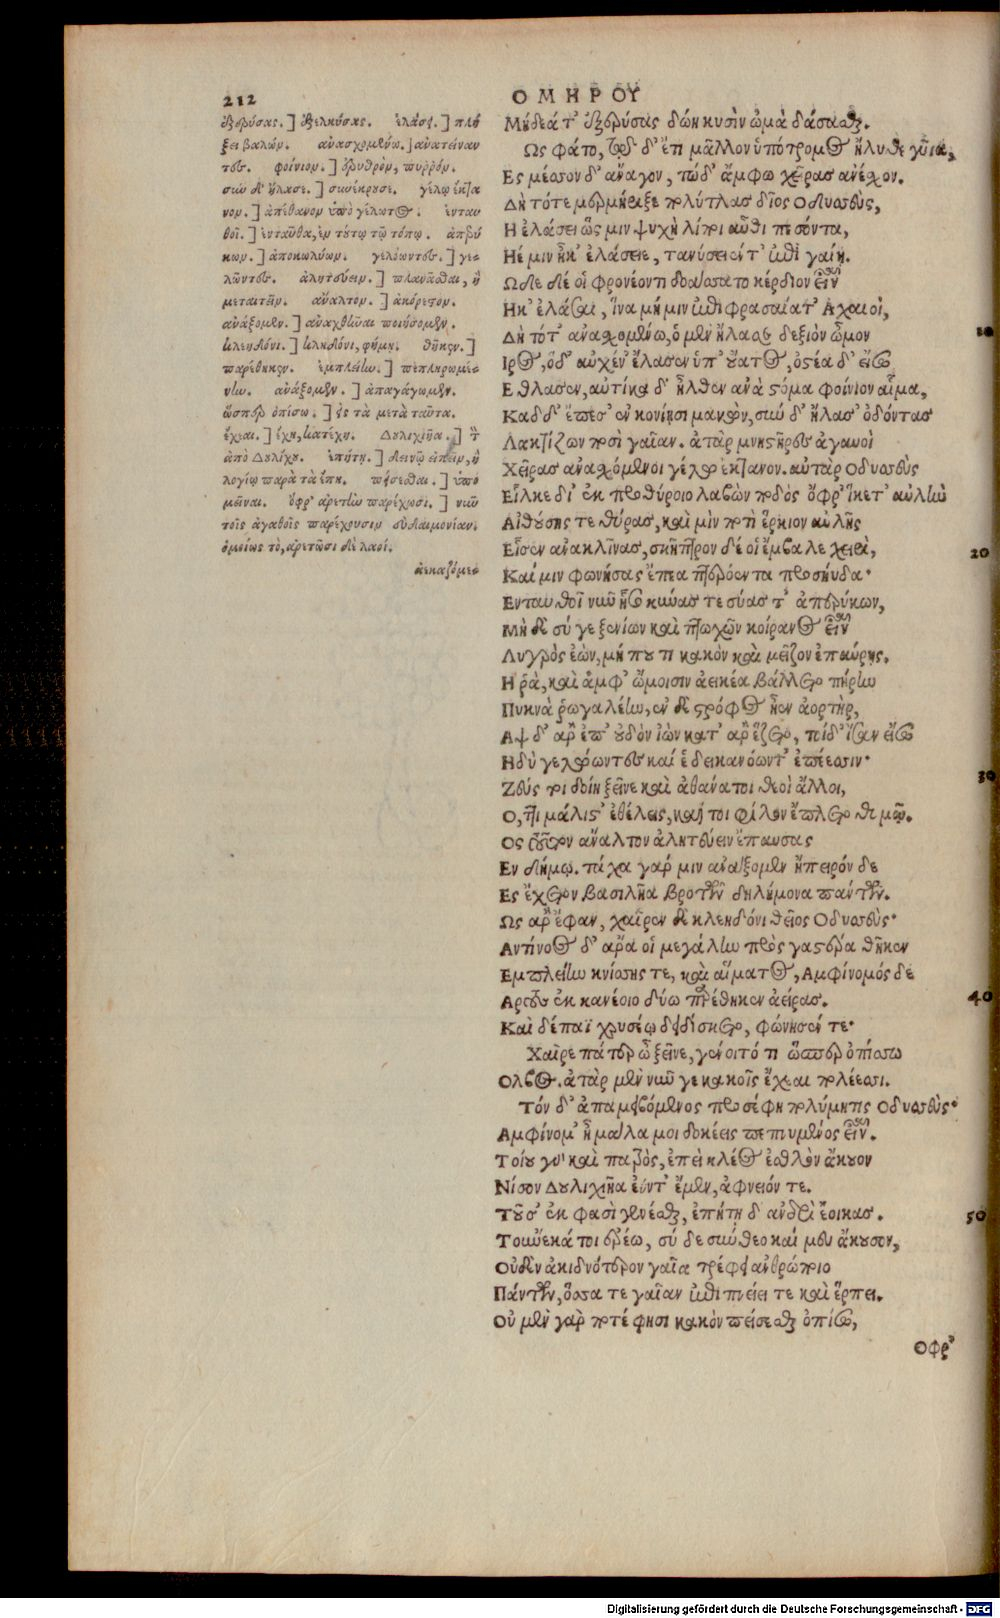 212
ΟΜΗΡΟΥ
ἐξερύσας.] ἐξελκύσας. ἐλάσῃ.] πλή
ξει βαλών. ἀνασχομένω.] ἀνατείναν
τες. φοίνιον.] ἐρυθρὸν, πυρρόν.
σὺν δ' ἤλασε.] συνέκρουσε. γέλῳ ἔκθα
νον.] ἀπέθανον ὑπὸ γέλωτος. ἐνταυ
θοῖ.] ἐνταῦθα, ἐν τούτῳ τῷ τόπῳ. ἀπερύ
κων.] ἀποκωλύων. γελώοντες.] γε-
λῶντες. ἀλητεύειν.] πλανᾶσθαι, ἢ
μεταιτεῖν. ἄναλτον.] ἀκόρεστον.
ἀνάξομεν.] ἀναχθῆναι ποιήσομεν.
κλεηδόνι.] κληδόνι, φήμῃ. θῆκεν.]
παρέθηκεν. ἐμπλείην.] πεπληρωμέ-
νην. ἀνάξομεν.] ἀπαγάγωμεν.
ὥσπερ ὀπίσω.] εἰς τὰ μετὰ ταῦτα.
ἔχεαι.] ἔχῃ, κατέχῃ. Δουλιχιῆα.] τ
ἀπὸ Δουλίχου. ἐπήτῃ.] δεινῷ εἰπεῖν, ἢ
λογίῳ παρὰ τὰ ἔπη. πείσεσθαι.] ὑπο
μεῖναι. ὄφρ' ἀρετὴν παρέχωσι.] νῦν
τοῖς ἀγαθοῖς παρέχουσιν εὐδαιμονίαν.
ὁμοίως τὸ, ἀρετῶσι δὲ λαοί.
ἀεκαζόμε-
Μήδεά τ' ἐξερύσας δώῃ κυσὶν ὠμὰ δάσασθαι.
Ως φάτο, τῷ δ' ἔτι μᾶλλον ὑπότρομος ἤλυθε γυῖα,
Ες μέσσον δ' ἄναγον, τὼ δ' ἄμφω χεῖρας ἀνέσχον.
Δὴ τότε μερμήριξε πολύτλας δῖος Οδυσσεὺς,
Η ἐλάσει ὥς μιν ψυχὴ λίποι αὖθι πεσόντα,
Ηέ μιν ἦκ' ἐλάσειε, τανύσειέν τ' ἐπὶ γαίῃ.
Ωδε δέ οἱ φρονέοντι δοάσσατο κέρδιον εἶναι
Ηκ' ἐλάσαι, ἵνα μή μιν ἐπιφρασσαίατ' Αχαιοὶ,
Δὴ τότ' ἀνασχομένω, ὁ μὲν ἤλασε δεξιὸν ὦμον
10
Ιρος, ὁ δ' αὐχέν' ἔλασσεν ὑπ' οὔατος, ὀστέα δ' εἴσω
Εθλασεν, αὐτίκα δ' ἦλθεν ἀνὰ στόμα φοίνιον αἷμα,
Καδ δ' ἔπεσ' ἐν κονίῃσι μακὼν, σὺν δ' ἤλασ' ὀδόντας
Λακτίζων ποσὶ γαῖαν. ἀτὰρ μνηστῆρες ἀγαυοὶ
Χεῖρας ἀνασχόμενοι γέλῳ ἔκθανον. αὐτὰρ Οδυσσεὺς
Εἷλκε δι' ἐκ προθύροιο λαβὼν ποδὸς ὄφρ' ἵκετ' αὐλὴν
Αἰθούσης τε θύρας, καὶ μὶν ποτὶ ἕρκιον αὐλῆς
Εἷσεν ἀνακλίνας, σκῆπτρον δέ οἱ ἔμβαλε χειρὶ,
20
Καί μιν φωνήσας ἔπεα πτερόεντα προσηύδα·
Ενταυθοῖ νῦν ἧσο κύνας τε σύας τ' ἀπερύκων,
Μὴ δὲ σύ γε ξείνων καὶ πτωχῶν κοίρανος εἶναι
Λυγρὸς ἐὼν, μή που τι κακὸν καὶ μεῖζον ἐπαύρῃς.
Η ῥὰ, καὶ ἀμφ' ὤμοισιν ἀεικέα βάλλετο πήρην
Πυκνὰ ῥωγαλέην, ἐν δὲ στρόφος ἦεν ἀορτὴρ,
Αψ δ' ἄρ' ἐπ' οὐδὸν ἰὼν κατ' ἄρ' ἕζετο, τοὶ δ' ἴσαν εἴσω
Ηδὺ γελώοντες καὶ ἐδεικανόωντ' ἐπέεσσιν·
Ζεύς τοι δοίη ξεῖνε καὶ ἀθάνατοι θεοὶ ἄλλοι,
30
Ο, ττι μάλιστ' ἐθέλεις, καὶ τοι φίλον ἔπλετο θυμῷ.
Ος τοῦτον ἄναλτον ἀλητεύειν ἔπαυσας
Εν δήμῳ. τάχα γάρ μιν ἀνάξομεν ἤπειρόν δε
Ες ἔχετον βασιλῆα βροτῶν δηλήμονα πάντων.
Ως ἄρ' ἔφαν, χαῖρεν δὲ κλεηδόνι θεῖος Οδυσσεύς·
Αντίνοος δ' ἄρα οἱ μεγάλην πρὸς γαστέρα θῆκεν
Εμπλείην κνίσσης τε, καὶ αἵματος, Αμφίνομός δε
Αρτους ἐκ κανέοιο δύω παρέθηκεν ἀείρας.
40
Καὶ δέπαϊ χρυσέῳ δειδίσκετο, φώνησέν τε·
Χαῖρε πάτερ ὦ ξεῖνε, γένοιτό τι ὥσπερ ὀπίσσω
Ολβος. ἀτὰρ μὲν νῦν γε κακοῖς ἔχεαι πολέεσσι.
Τόν δ' ἀπαμειβόμενος προσέφη πολύμητις Οδυσσεύς·
Αμφίνομ' ἦ μάλα μοι δοκέεις πεπνυμένος εἶναι.
Τοίου γὰρ καὶ πατρὸς, ἐπεὶ κλέος ἐσθλὸν ἄκουον
Νίσον Δουλιχιῆα ἐΰντ' ἔμεν, ἀφνειόν τε.
Τοῦ σ' ἐκ φασὶ γενέσθαι, ἐπήτῃ δ' ἀνδρὶ ἔοικας.
50
Τοὔνεκά τοι ἐρέω, σύ δε σύνθεο καί μευ ἄκουσον,
Οὐδὲν ἀκιδνότερον γαῖα τρέφει ἀνθρώποιο
Πάντων, ὅσσα τε γαῖαν ἐπὶ πνείει τε καὶ ἕρπει.
Οὐ μὲν γάρ ποτέ φησι κακὸν πείσεσθαι ὀπίσσω,
Οφρ'
Digitalisierung gefördert durch die Deutsche Forschungsgemeinschaft - DFG